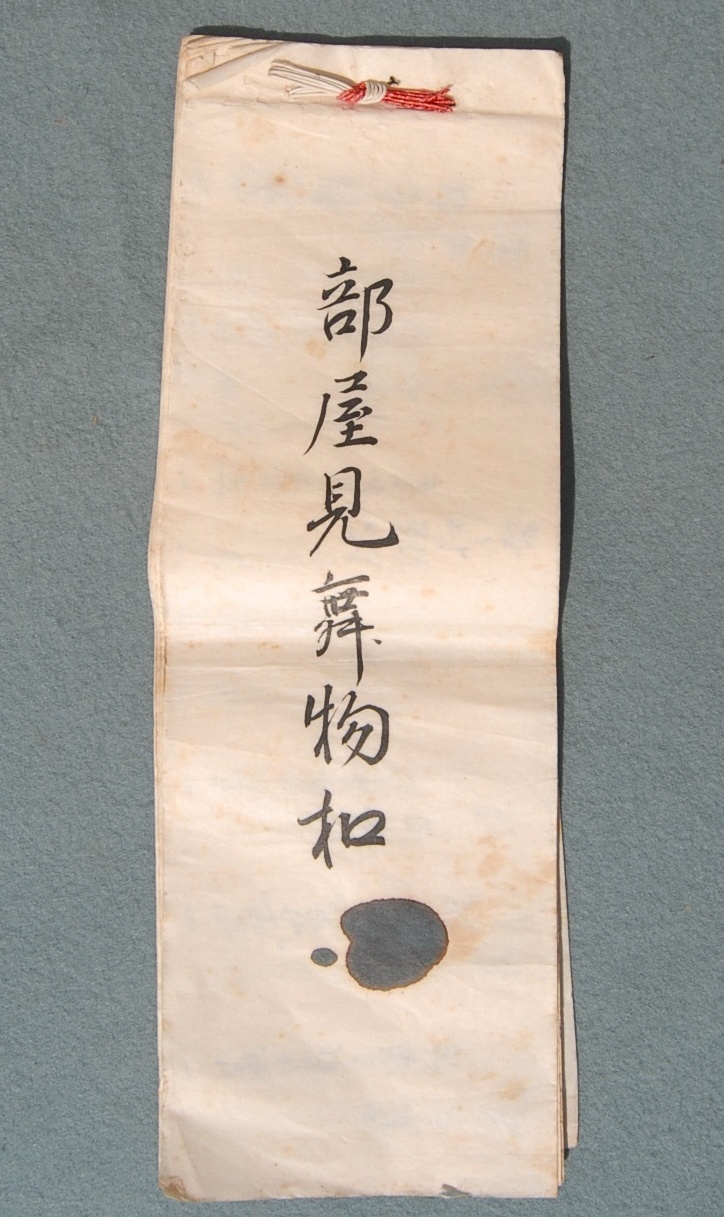 部屋見舞物扣